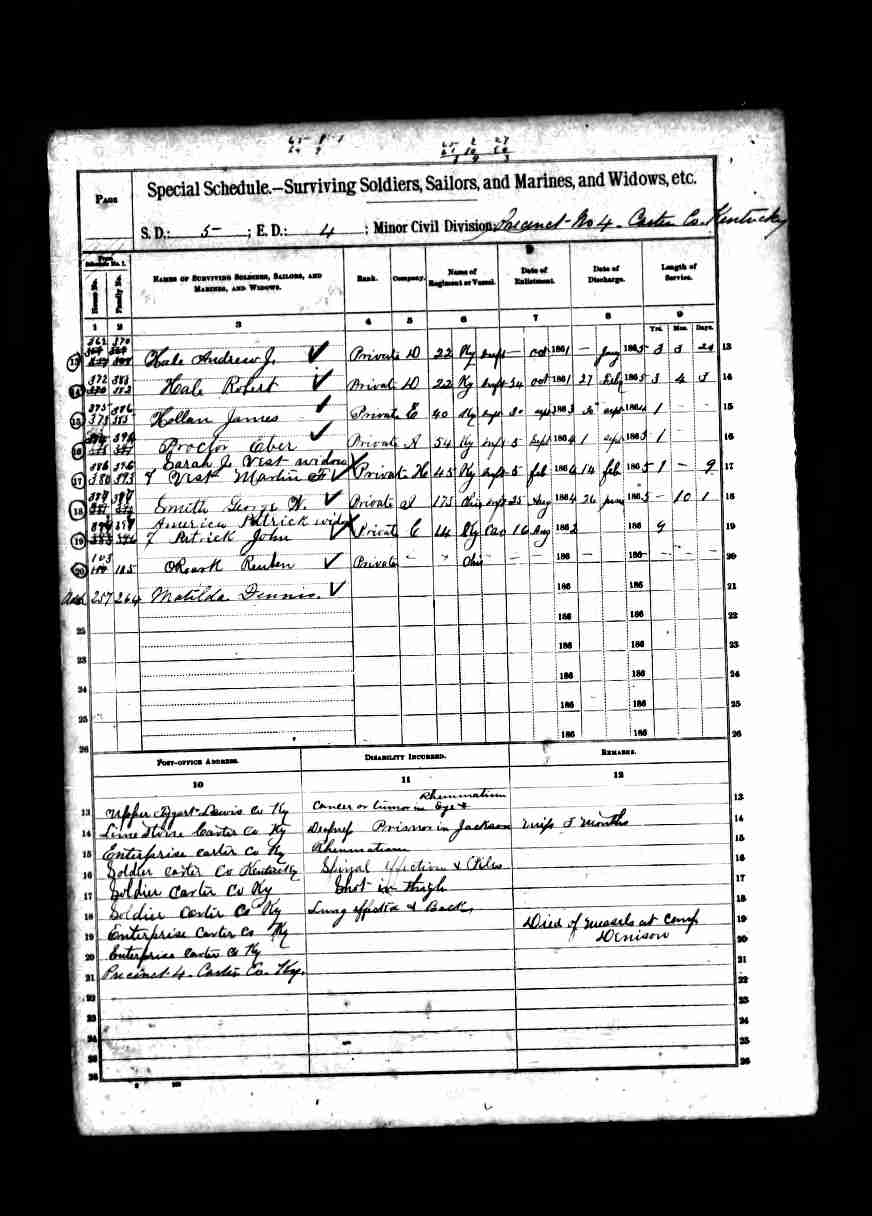 Special Schedule.—Surviving Soldiers, Sailors, and Marines, and Widows, etc.
PAGE
S. D.: 5 ; E. D.: 4 ; Minor Civil Division: Precinct No 4 Carter Co. Kentucky
House No. Family No. NAMES OF SURVIVING SOLDIERS, SAILORS, AND MARINES, AND WIDOWS. Rank. Company. Name of Regiment or Vessel. Date of Enlistment. Date of Discharge. Length of Service.
1 2 3 4 5 6 7 8 9
Yrs. Mos. Days.
13 Hale Andrew J. Private D 22 Ky Inft — Oct 1861 — 1865 3 3 13
14 372 383 Hale Robert Private D 22 Ky Inft 24 Oct 1861 27 1865 3 4 3 14
15 375 386 Hollan James Private E 40 Ky Inft Sept 1863 Sept 1864 1 — — 15
16 Proctor Eber Private A 54 Ky Inft 5 Sept 1864 1 Sept 1865 1 — 16
Sarah J. Vest widow
17 386 396 380 393 Vest Martin F Private H 45 Ky Inft 5 Feb 1864 14 Feb 1865 1 — 9 17
18 Smith George W. Private I 173 Ohio Inft 25 Aug 1864 26 June 1865 — 10 1 18
America Patrick wid
19 Patrick John Private C 14 Ky Cav 16 Aug 1862 186 9 19
20 103 105 ORoark Reuben Private — — Ohio — 186 — 186 — — — 20
257 264 Matilda Dennis. 186 186 21
22 186 186 22
23 186 186 23
24 186 186 24
25 186 186 25
26 186 186 26
POST-OFFICE ADDRESS. DISABILITY INCURRED. REMARKS.
10 11 12
13 Upper Tygart Lewis Co Ky Cancer or tumor in Eye & Rheumatism 13
14 Lime Stone Carter Co Ky Prisoner in Jackson Miss 5 months 14
15 Enterprise Carter Co Ky Rheumatism 15
16 Soldier Carter Co Kentucky Spinal affection & Piles 16
17 Soldier Carter Co Ky Shot in thigh 17
18 Soldier Carter Co Ky Lung & Back, 18
19 Enterprise Carter Co Ky Died of measels at Camp Denison 19
20 Enterprise Carter Co Ky 20
21 Precinct 4 Carter Co. Ky. 21
22 22
23 23
24 24
25 25
26 26